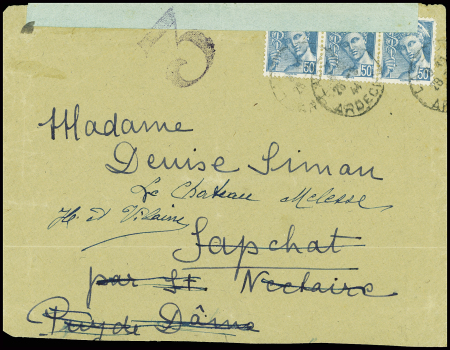 3
50 50 50
ARDECHE
Madame
Denise Siman
Le Chateau Melesse
Il et Vilaine
Sapchat
par St Nectaire
Puy de Dôme